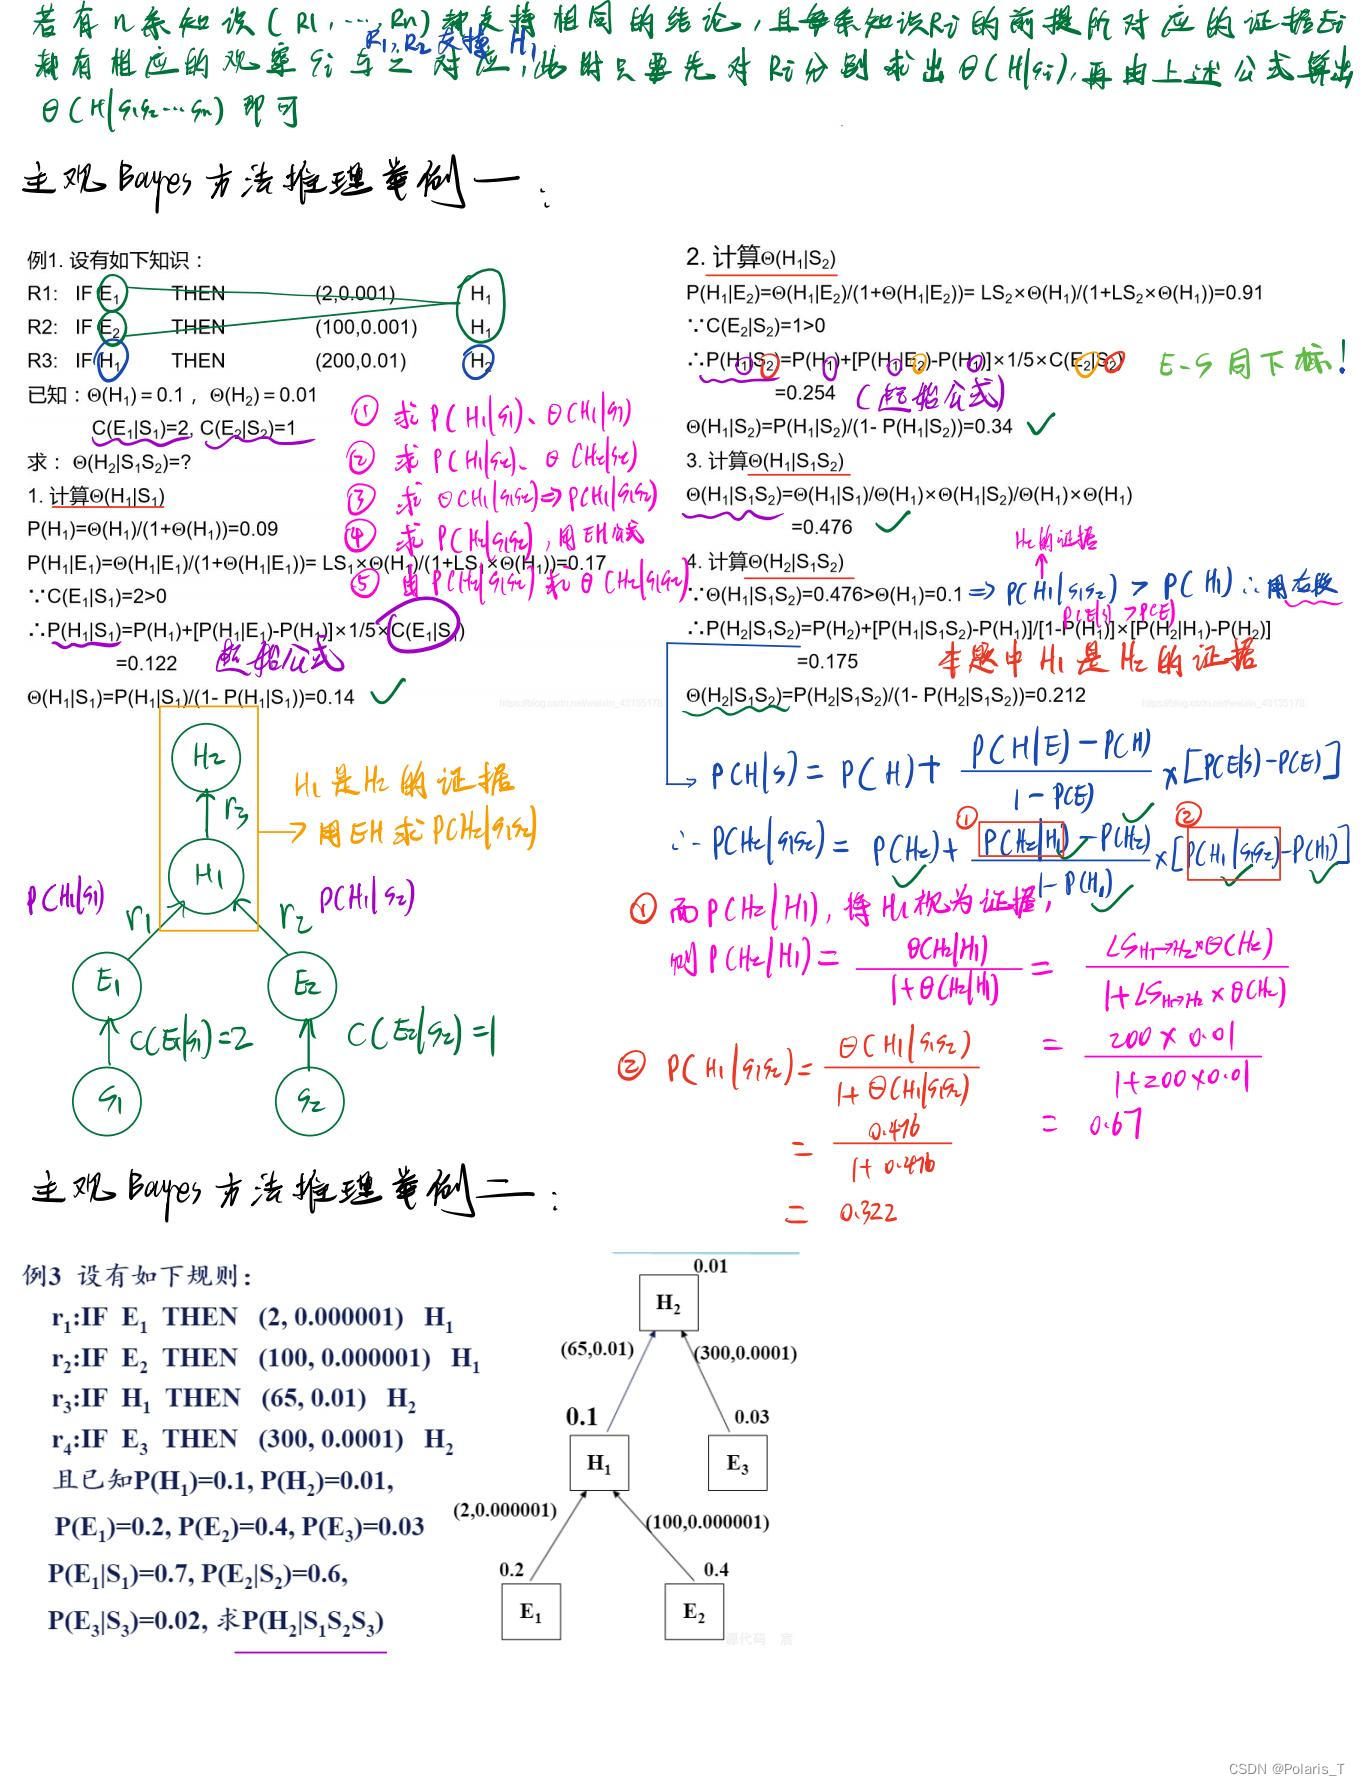 若有n条知识(R1,…,Rn)都支持相同的结论,且每条知识Ri的前提所对应的证据Ei
R1,R2支撑 H1
都有相应的观察Si与之对应,此时只要先对Ri分别求出Θ(H|Si),再由上述公式算出
Θ(H|S1S2…Sn)即可
主观Bayes方法推理举例一:
例1. 设有如下知识:
R1: IF E₁ THEN (2,0.001) H₁
R2: IF E₂ THEN (100,0.001) H₁
R3: IF H₁ THEN (200,0.01) H₂
已知:Θ(H₁)=0.1, Θ(H₂)=0.01
C(E₁|S₁)=2, C(E₂|S₂)=1
求: Θ(H₂|S₁S₂)=?
① 求P(H1|S1)、Θ(H1|S1)
② 求P(H1|S2)、Θ(H2|S2)
③ 求Θ(H1|S1S2)⇒P(H1|S1S2)
④ 求P(H2|S1S2),用EH公式
⑤ 由P(H2|S1S2)求Θ(H2|S1S2)
1. 计算Θ(H₁|S₁)
P(H₁)=Θ(H₁)/(1+Θ(H₁))=0.09
P(H₁|E₁)=Θ(H₁|E₁)/(1+Θ(H₁|E₁))= LS₁×Θ(H₁)/(1+LS₁×Θ(H₁))=0.17
∵C(E₁|S₁)=2>0
∴P(H₁|S₁)=P(H₁)+[P(H₁|E₁)-P(H₁)]×1/5×C(E₁|S₁)
=0.122
起始公式
Θ(H₁|S₁)=P(H₁|S₁)/(1- P(H₁|S₁))=0.14
https://blog.csdn.net/weixin_43135178
2. 计算Θ(H₁|S₂)
P(H₁|E₂)=Θ(H₁|E₂)/(1+Θ(H₁|E₂))= LS₂×Θ(H₁)/(1+LS₂×Θ(H₁))=0.91
∵C(E₂|S₂)=1>0
∴P(H₁|S₂)=P(H₁)+[P(H₁|E₂)-P(H₁)]×1/5×C(E₂|S₂)
E-S同下标!
=0.254
(起始公式)
Θ(H₁|S₂)=P(H₁|S₂)/(1- P(H₁|S₂))=0.34
3. 计算Θ(H₁|S₁S₂)
Θ(H₁|S₁S₂)=Θ(H₁|S₁)/Θ(H₁)×Θ(H₁|S₂)/Θ(H₁)×Θ(H₁)
=0.476
H2的证据
4. 计算Θ(H₂|S₁S₂)
∵Θ(H₁|S₁S₂)=0.476>Θ(H₁)=0.1 ⇒ P(H1|S1S2) > P(H1) ∴用右段
P(E|S)>P(E)
∴P(H₂|S₁S₂)=P(H₂)+[P(H₁|S₁S₂)-P(H₁)]/[1-P(H₁)]×[P(H₂|H₁)-P(H₂)]
=0.175
本题中H1是H2的证据
Θ(H₂|S₁S₂)=P(H₂|S₁S₂)/(1- P(H₂|S₁S₂))=0.212
https://blog.csdn.net/weixin_43135178
H2
r3
H1
H1是H2的证据
→用EH求P(H2|S1S2)
P(H1|S1)
P(H1|S2)
r1
r2
E1
E2
C(E1|S1)=2
C(E2|S2)=1
S1
S2
P(H|S) = P(H) + P(H|E)-P(H) / 1-P(E) × [P(E|S)-P(E)]
∴ P(H2|S1S2) = P(H2) + ① P(H2|H1)-P(H2) / 1-P(H1) × [② P(H1|S1S2)-P(H1)]
① 而P(H2|H1),将H1视为证据,
则P(H2|H1) = Θ(H2|H1) / 1+Θ(H2|H1) = LS H1→H2×Θ(H2) / 1+LS H1→H2×Θ(H2)
= 200×0.01 / 1+200×0.01
= 0.67
② P(H1|S1S2) = Θ(H1|S1S2) / 1+Θ(H1|S1S2)
= 0.476 / 1+0.476
= 0.322
主观Bayes方法推理举例二:
例3 设有如下规则:
r₁:IF E₁ THEN (2, 0.000001) H₁
r₂:IF E₂ THEN (100, 0.000001) H₁
r₃:IF H₁ THEN (65, 0.01) H₂
r₄:IF E₃ THEN (300, 0.0001) H₂
且已知P(H₁)=0.1, P(H₂)=0.01,
P(E₁)=0.2, P(E₂)=0.4, P(E₃)=0.03
P(E₁|S₁)=0.7, P(E₂|S₂)=0.6,
P(E₃|S₃)=0.02, 求P(H₂|S₁S₂S₃)
0.01
H₂
(65,0.01)
(300,0.0001)
0.1
0.03
H₁
E₃
(2,0.000001)
(100,0.000001)
0.2
0.4
E₁
E₂
源代码 宸
CSDN @Polaris_T